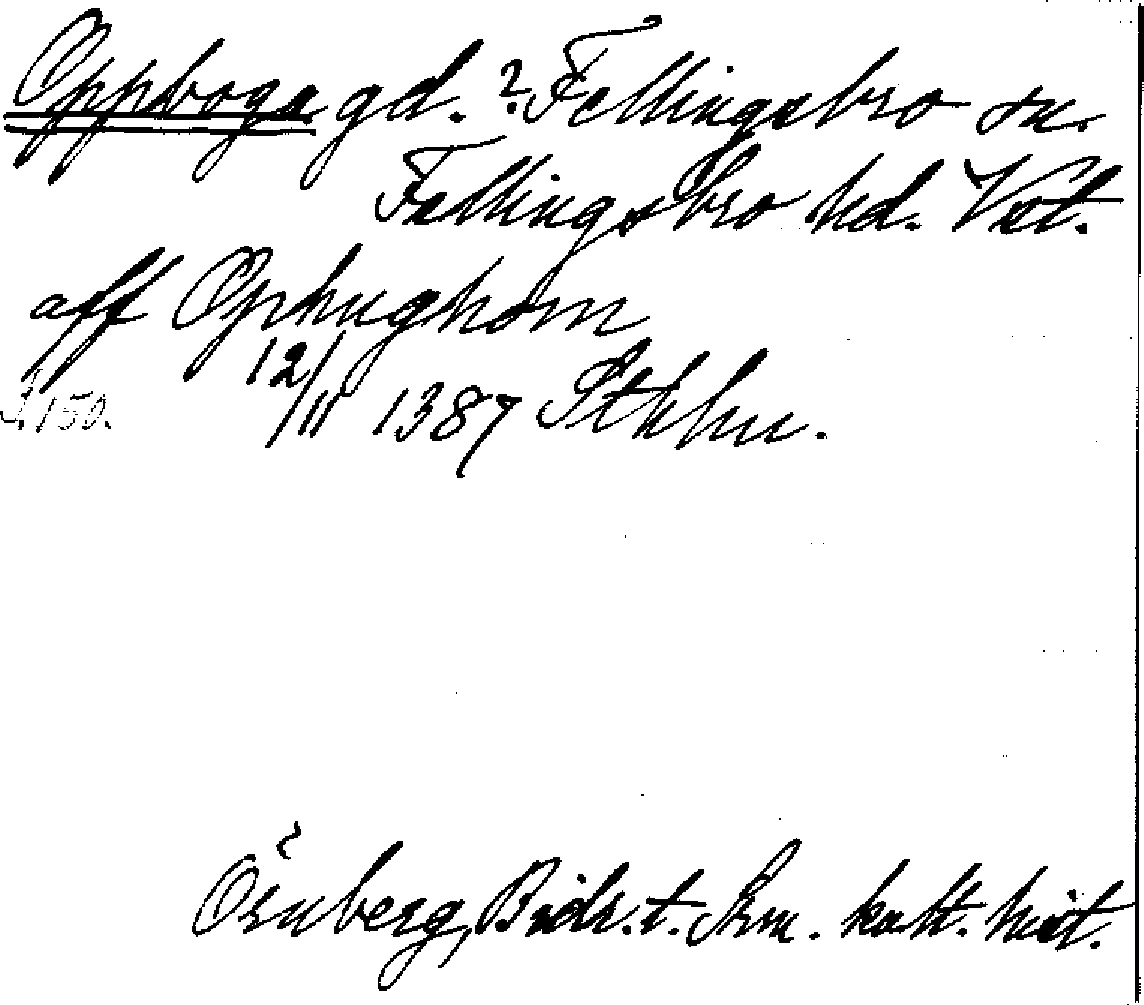 Oppboga gd. ? Fellingsbro sn.
Fellingsbro hd. Vstl.
aff Ophughom
12/11 1387 Sthlm.
S. 150.
Örnberg, Bidr. t. Srm. katt. hist.